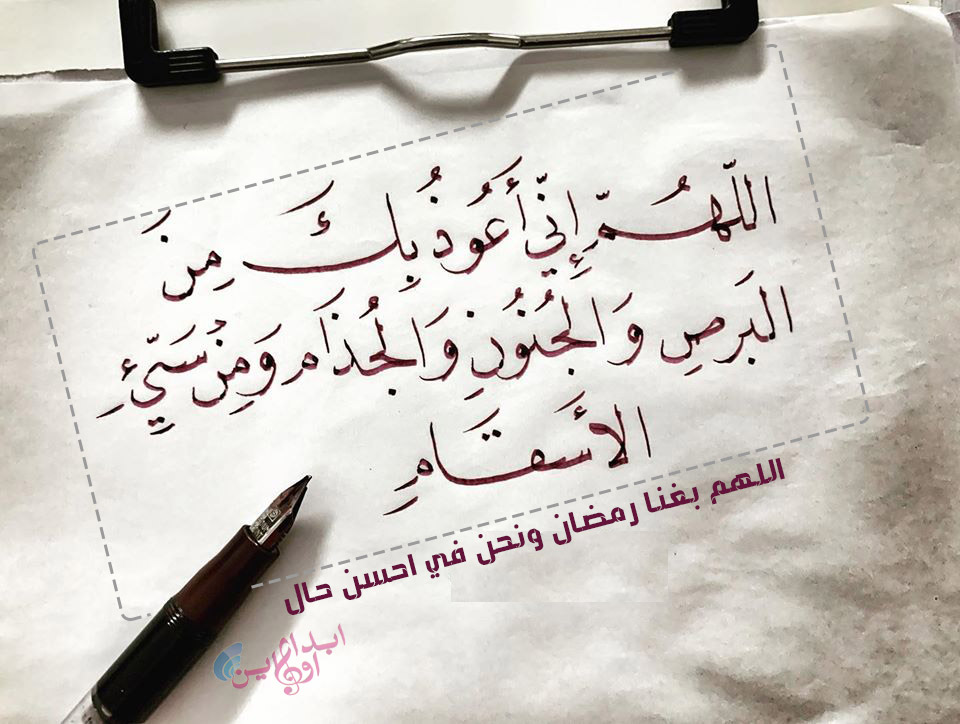 اللّهُمّ إِنّي أَعُوذُ بِكَ مِنَ
البَرَصِ وَالجُنُونِ وَالجُذَامِ وَمِنْ سَيّئِ
الأَسقَامِ
اللهم بغنا رمضان ونحن في احسن حال
ابداع
اون لاين